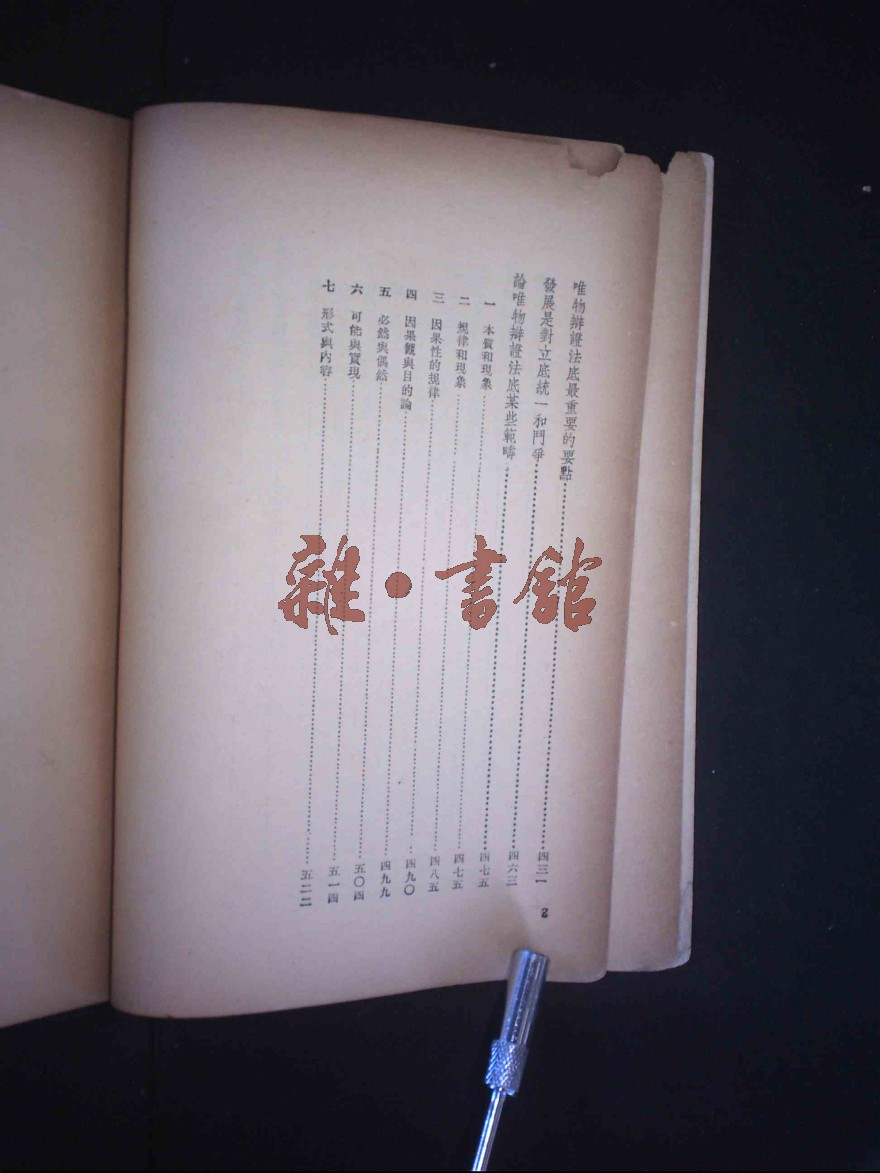 唯物辯證法底最重要的要點……四三一
發展是對立底統一和鬥爭……四六三
論唯物辯證法底某些範疇……四七五
一 本質和現象……四七五
二 規律和現象……四八五
三 因果性的規律……四九〇
四 因果觀與目的論……四九九
五 必然與偶然……五〇四
六 可能與實現……五一四
七 形式與內容……五二二
2
雜·書館